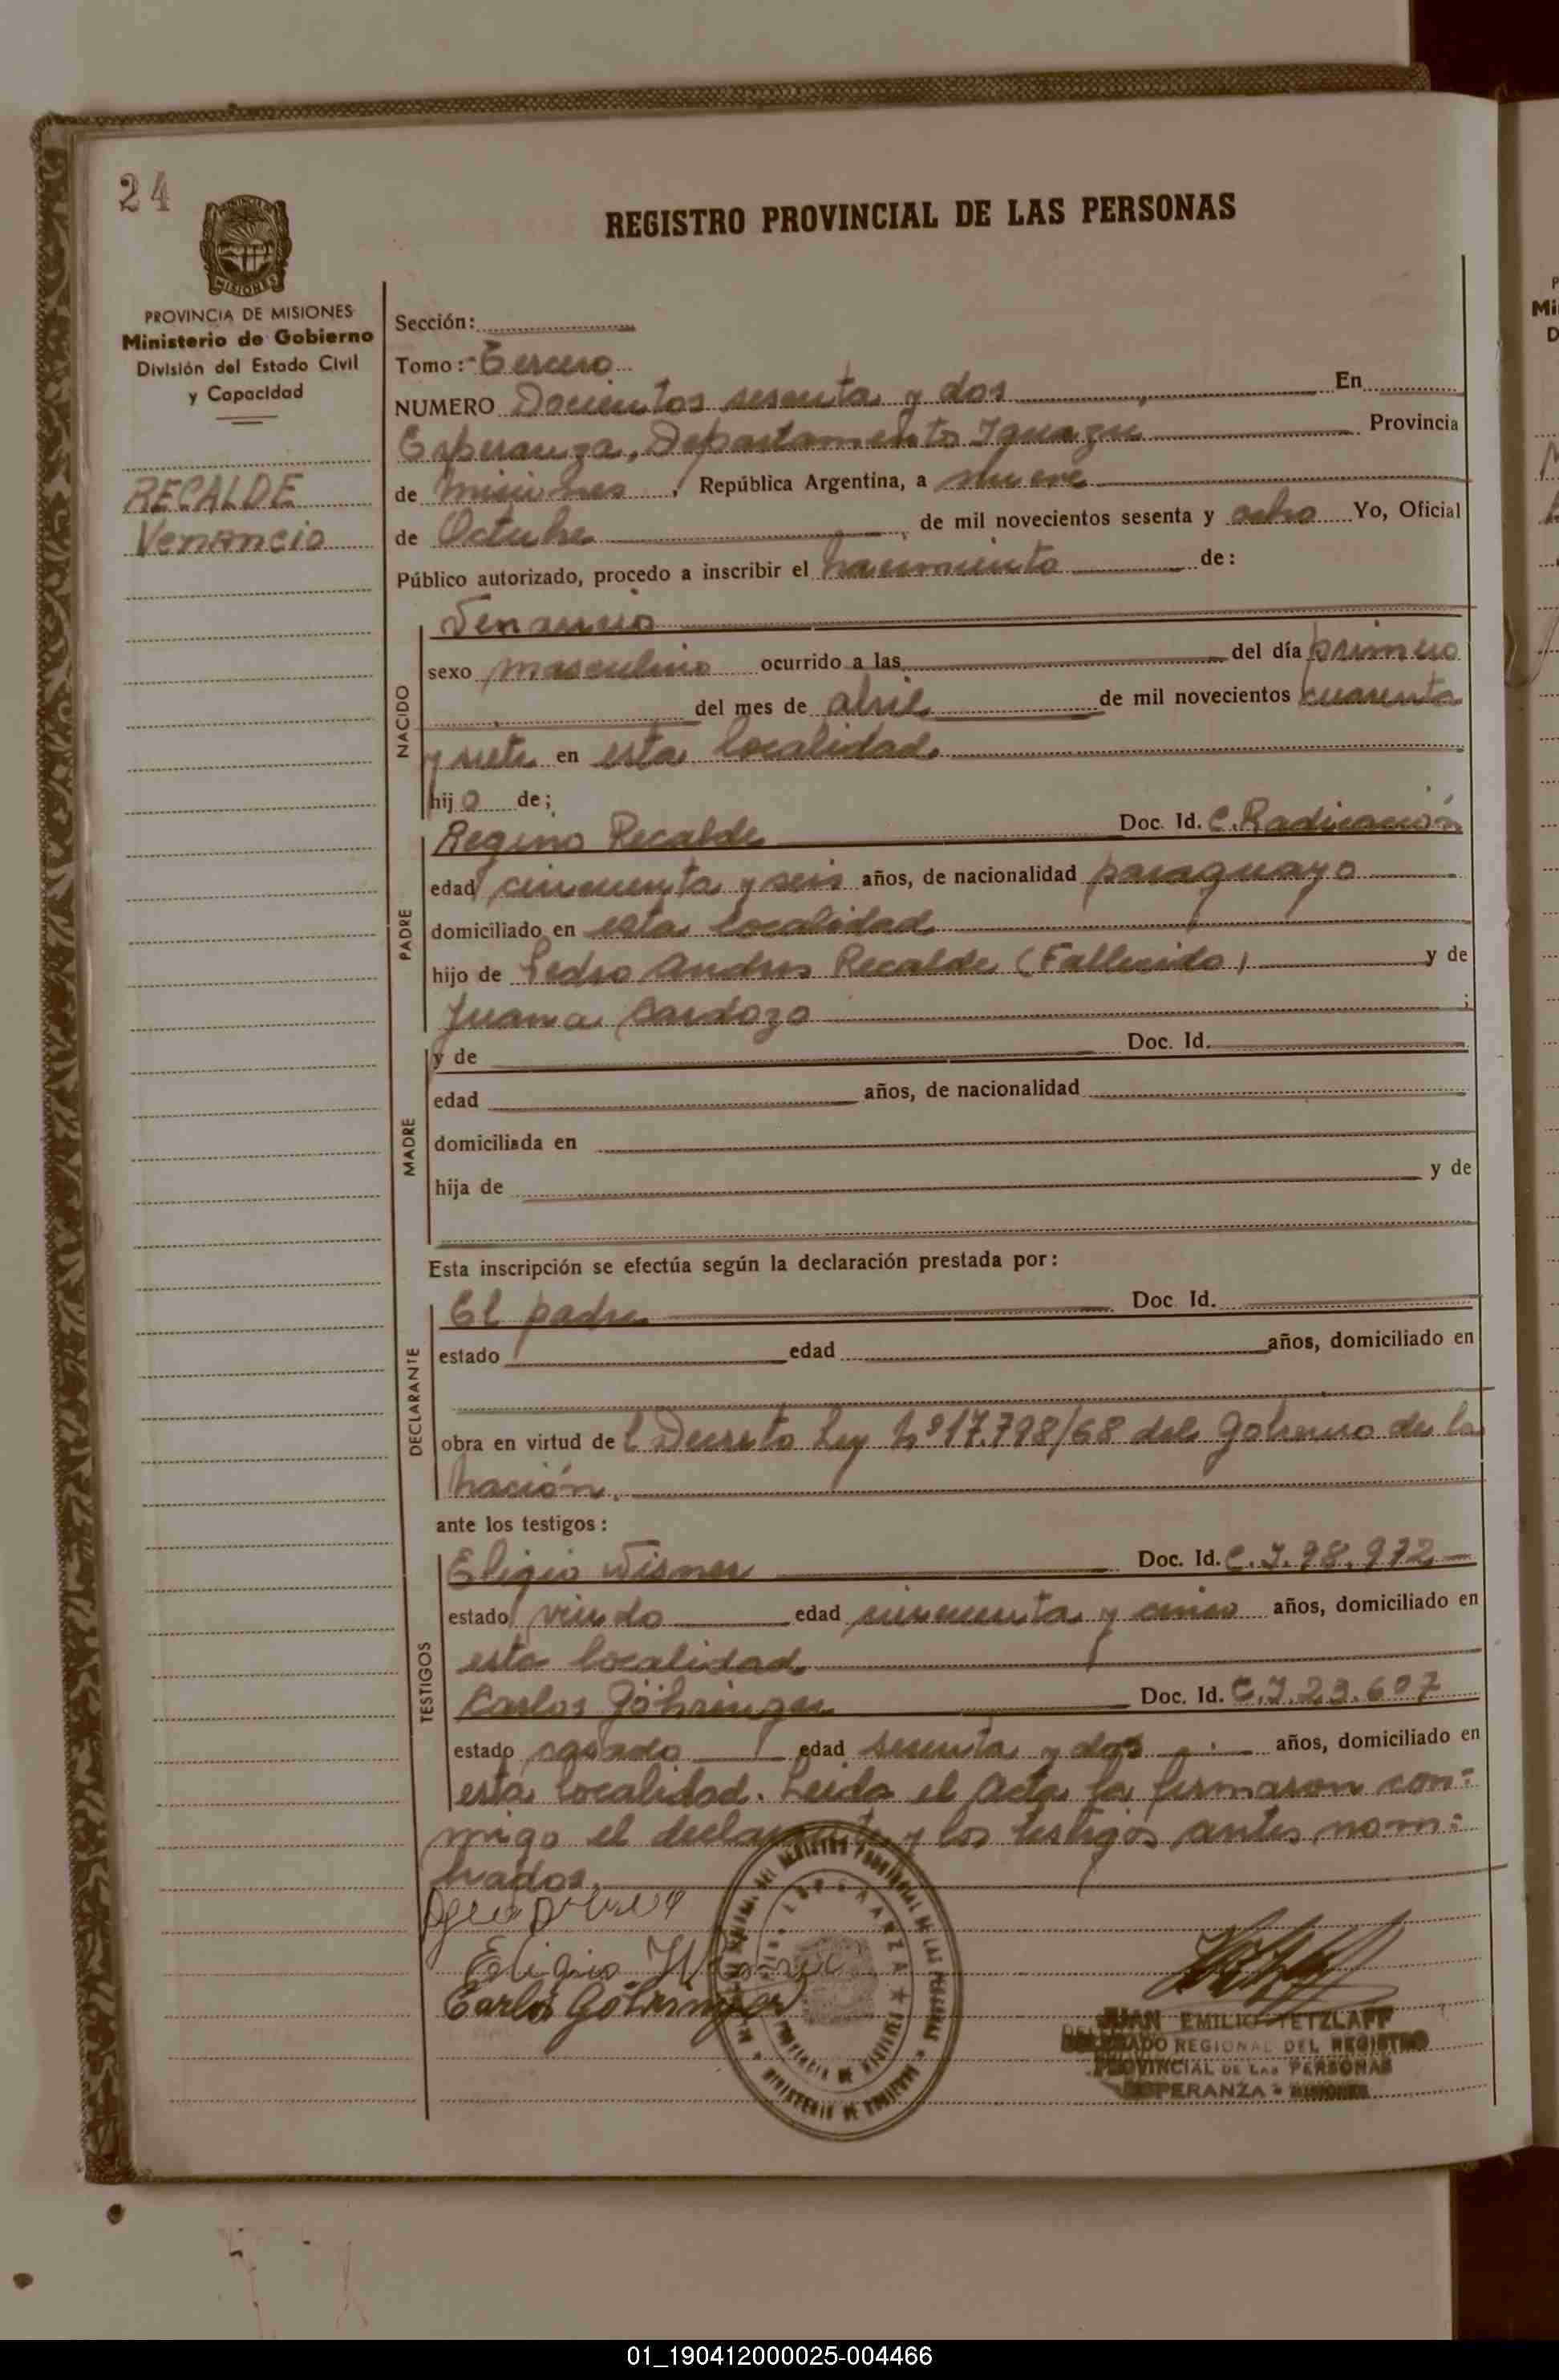 24
REGISTRO PROVINCIAL DE LAS PERSONAS
PROVINCIA DE MISIONES
Ministerio de Gobierno
División del Estado Civil
y Capacidad
RECALDE
Venancio
Sección:
Tomo: Tercero
NUMERO Docientos sesenta y dos En
Esperanza, Departamento Iguazu Provincia
de Misiones, República Argentina, a nueve
de Octubre, de mil novecientos sesenta y ocho Yo, Oficial
Público autorizado, procedo a inscribir el nacimiento de:
NACIDO
Venancio
sexo masculino ocurrido a las del día primero
del mes de abril de mil novecientos cuarenta
y siete en esta localidad
hijo de;
PADRE
Regino Recalde Doc. Id. C. Radicación
edad cincuenta y seis años, de nacionalidad paraguayo
domiciliado en esta localidad
hijo de Pedro Andres Recalde (Fallecido) y de
Juana Cardozo ;
MADRE
y de Doc. Id.
edad años, de nacionalidad
domiciliada en
hija de y de
Esta inscripción se efectúa según la declaración prestada por:
DECLARANTE
El padre Doc. Id.
estado edad años, domiciliado en
obra en virtud de l Decreto Ley Nº 17.798/68 del Gobierno de la
Nación.
ante los testigos:
TESTIGOS
Eligio Wisner Doc. Id. C.I. 98.972
estado viudo edad cincuenta y cinco años, domiciliado en
esta localidad
Carlos Göhringer Doc. Id. C.I. 23.607
estado casado edad sesenta y dos años, domiciliado en
esta localidad. Leida el Acta la firmaron con=
migo el declarante y los testigos antes nom=
brados.
Eligio Wisner
Carlos Göhringer
JUAN EMILIO TETZLAFF
DELEGADO REGIONAL DEL REGISTRO
PROVINCIAL DE LAS PERSONAS
ESPERANZA - MISIONES
01_190412000025-004466